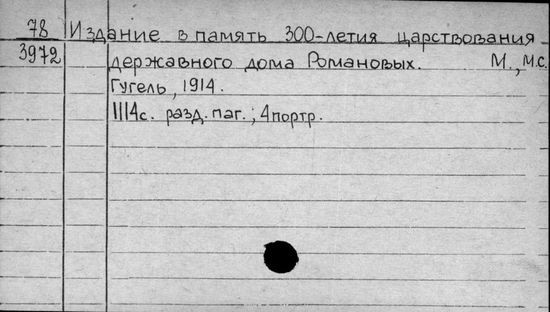 78 Издание в память 300-летия царствования
3972 державного дома Романовых. М., М.С.
Гугель, 1914.
1114с. разд. паг.; 4 портр.